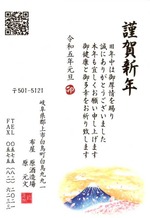 謹賀新年
旧年中は御厚情を賜り
誠にありがとうございます
本年も宜しくお願い申し上げます
御健康と御多幸をお祈り致します
令和五年元旦
〒501-5121
岐阜県郡上市白鳥町白鳥九九一
布屋 原酒造場
原 元文
TEL
FAX